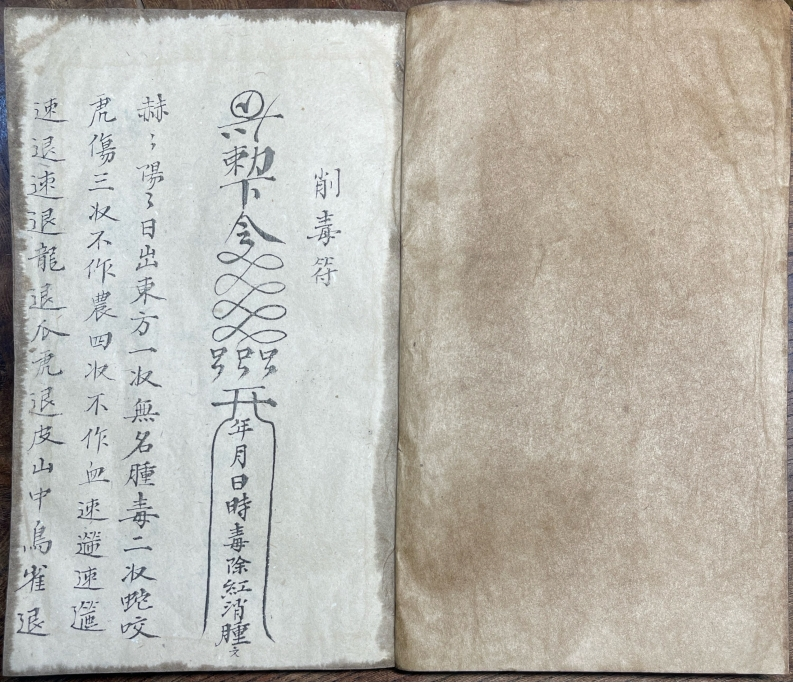 削毒符
勅下令
年月日時毒除紅消腫
赫〻陽〻日出東方一收無名腫毒二收蛇咬
虎傷三收不作農四收不作血速速
速退速退龍退爪虎退皮山中鳥雀退